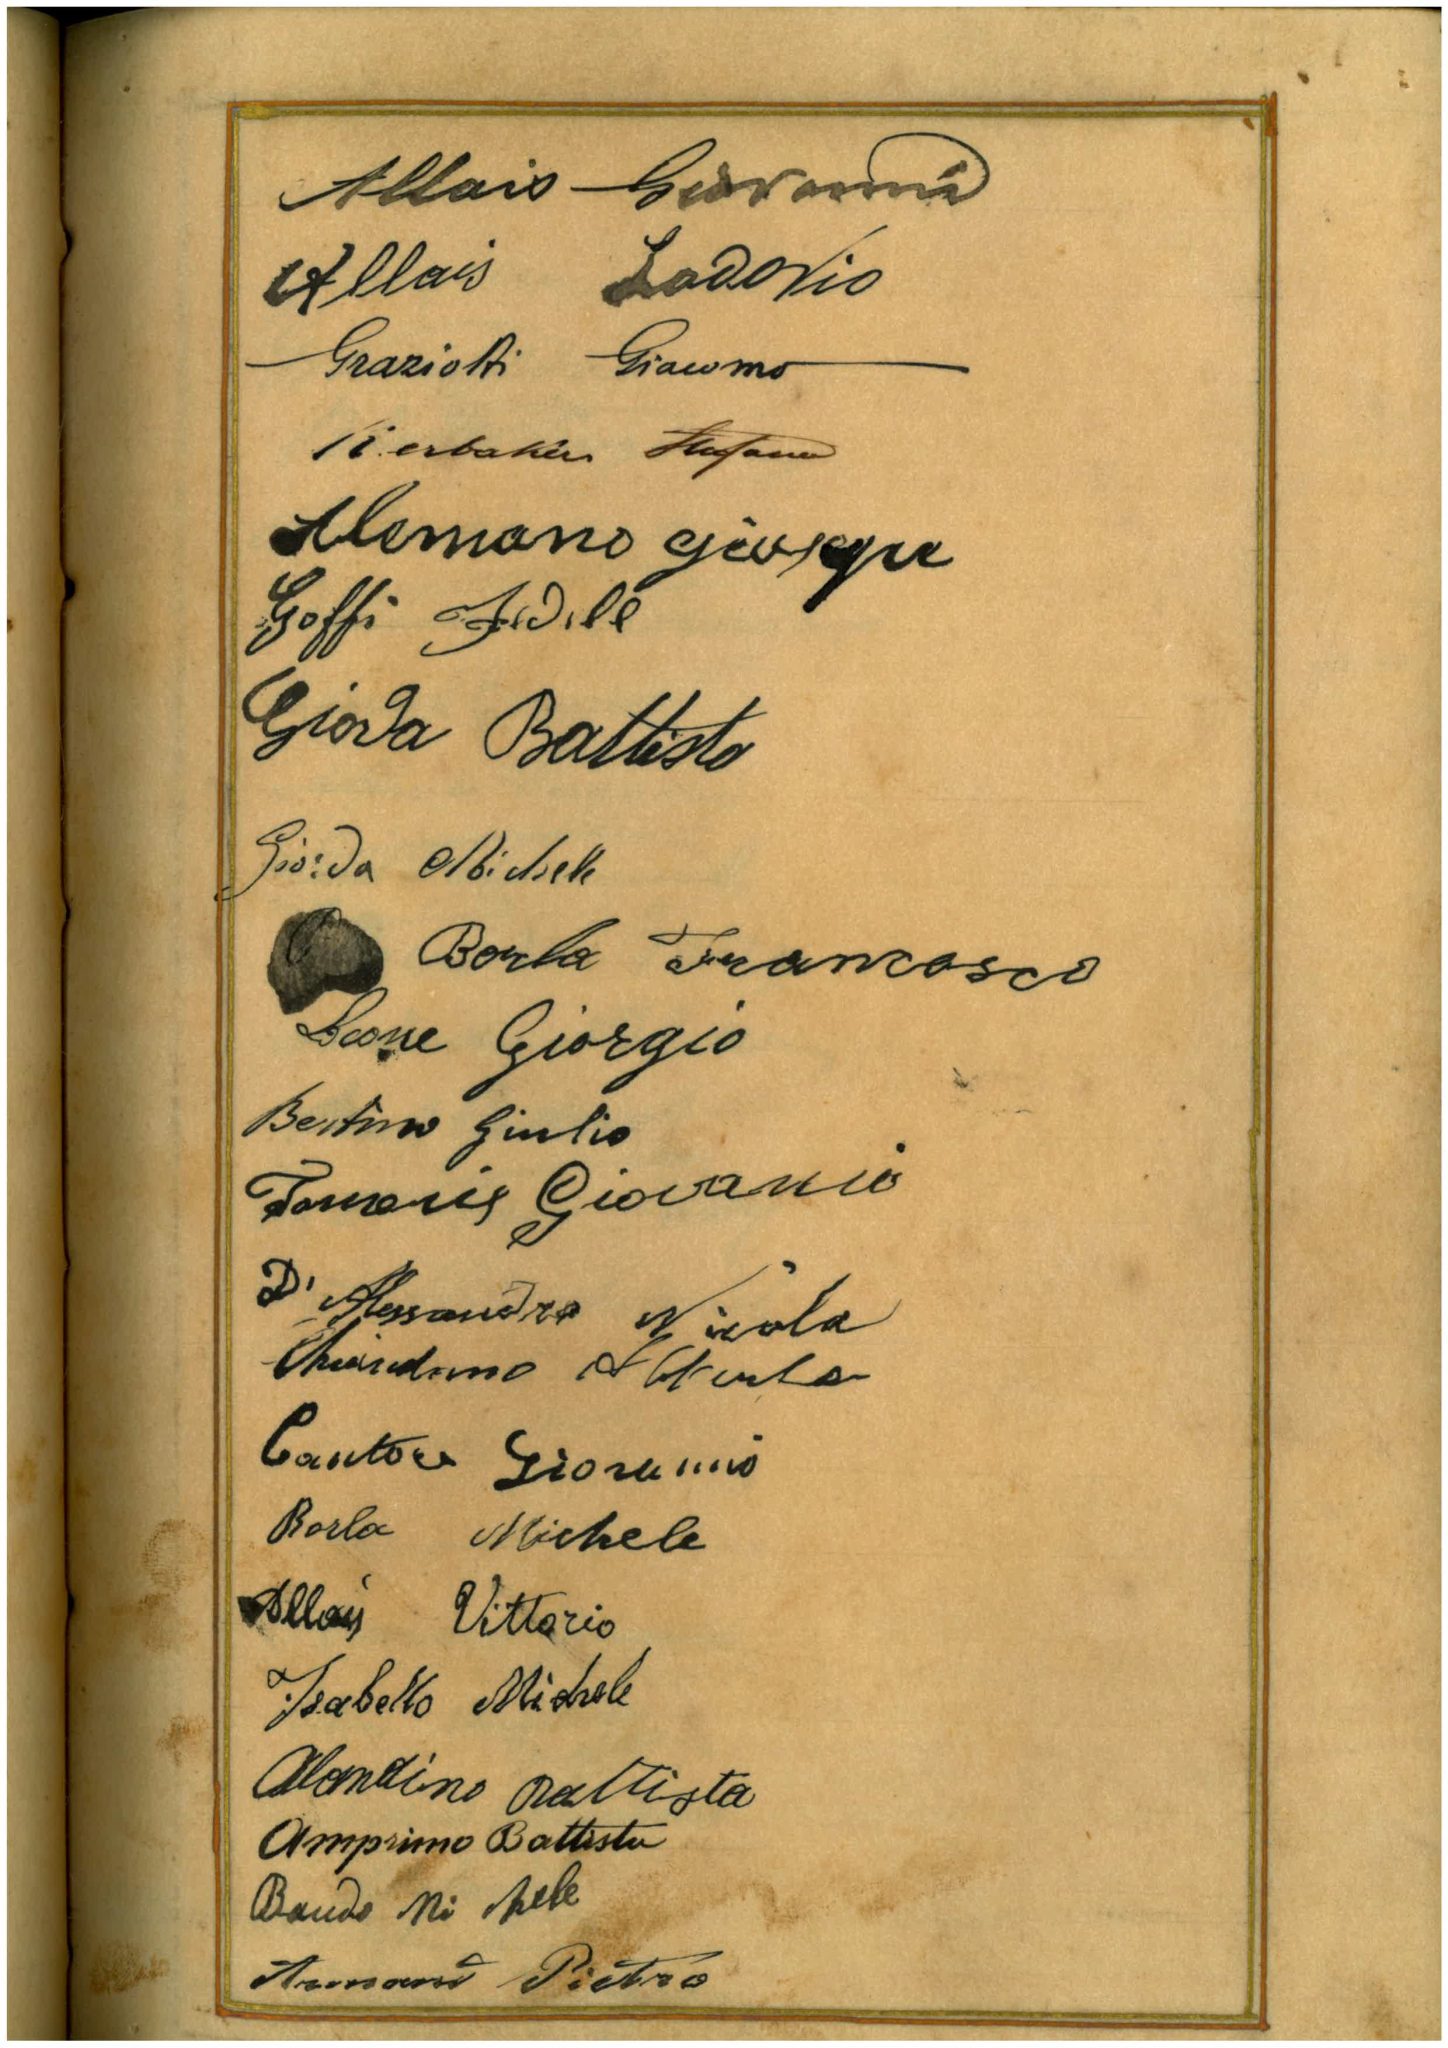 Allais Giovanni
Allais Lodovio
Graziotti Giacomo
Kerbaker Stefano
Alemano Giuseppe
Goffi Fidele
Giorda Battista
Giorda Michele
Borla Francesco
Leone Giorgio
Bertino Giulio
Giovanni
D'Alessandro Nicola
Cantore Giovanni
Borla Michele
Allais Vittorio
Isabello Michele
Battista
Amprimo Battista
Baudo Michele
Armand Pietro